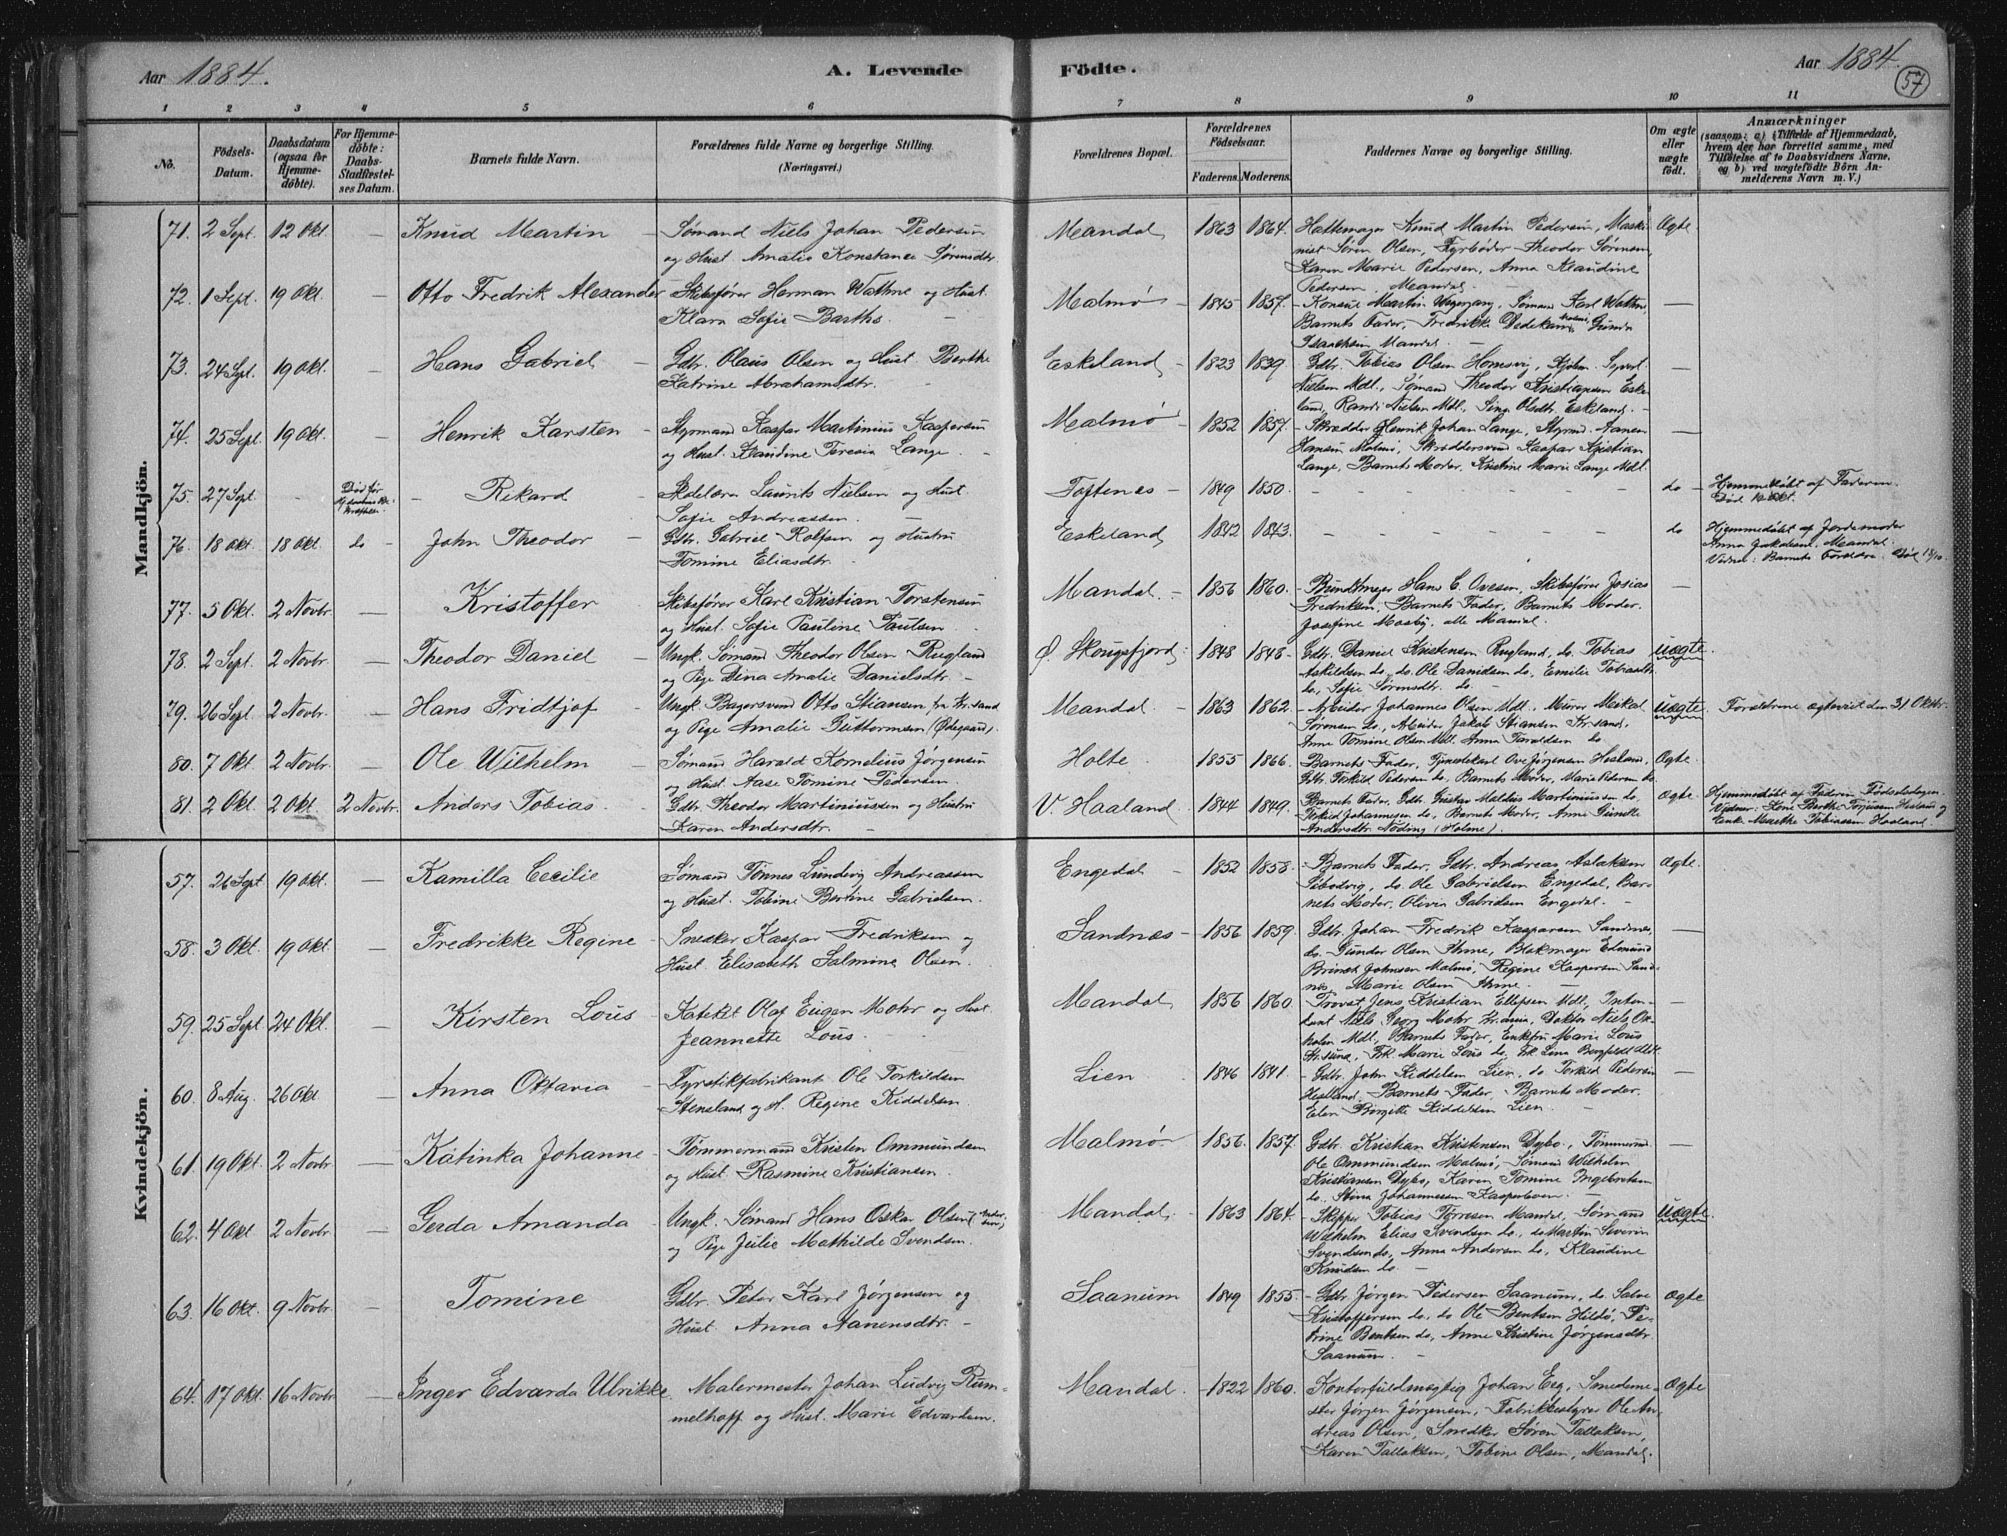 Aar 1884. A. Levende Födte. Aar 1884.
57
1 2 3 4 5 6 7 8 9 10 11
No.
Födsels-Datum.
Daabsdatum (ogsaa for Hjemmedöbte).
For Hjemmedöbte: Daabs-Stadfæstelses Datum.
Barnets fulde Navn.
Forældrenes fulde Navne og borgerlige Stilling. (Næringsvei.)
Forældrenes Bopæl.
Forældrenes Födselsaar.
Faderens. Moderens.
Faddernes Navne og borgerlige Stilling.
Om ægte eller uægte født.
Anmærkninger
(saasom: a) i Tilfælde af Hjemmedaab, hvem der har forrettet samme, med Tilföielse af to Daabsvidners Navne, og b) ved uægtefödte Börn Anmelderens Navn m. V.)
Mandkjön.
71. 2 Sept. 12 Okt. — Knud Martin — Sømand Niels Johan Pedersen Mandal 1863 1864. Hattemager Knud Martin Pedersen, Maski- Ægte
og Hust. Amalie Konstance Sørensdtr. nist Søren Olsen, Fyrbøder Theodor Sørensen,
Karen Marie Pedersen, Anna Klaudine
Pedersen, Mandal.
72. 1 Sept. 19 Okt. — Otto Fredrik Alexander Skibsfører Herman Wathne og Hust. Malmø 1845 1857. Konsul Martin Sømand Karl Wathne —
Klara Sofie Barths Barnets Fader, Fredrikke Dedekam, Gunda
Isaachsen Mandal.
73. 24 Sept. 19 Okt. — Hans Gabriel Gdbr. Olaus Olsen og Hust. Berthe Eskeland 1823 1839. Gdbr. Tobias Olsen Homsvig, Sivert —
Katrine Abrahamsdtr. Nielsen Mdl., Sømand Theodor Kristiansen Eske-
land, Randi Nielsen Mdl., Sina Olsdtr. Eskeland.
74. 25 Sept. 19 Okt. — Henrik Karsten Styrmand Kaspar Martinius Kaspersen Malmø 1852 1857. Skrædder Henrik Johan Lange, Styrmd. Aanen —
og Hust. Klaudine Teresia Lange. Hansen Malmø, Skræddersvend Kaspar Kristian
Lange, Barnets Moder, Kristine Marie Lange Mdl.
75. 27 Sept. Død før Rikard Laurits Nielsen og Hust. Toftenes 1849 1850. do Hjemmedøbt af Faderen.
Sofie Andreassen. Død Okt.
76. 18 Okt. 18 Okt. do John Theodor Gdbr. Gabriel Rolfsen og Hustru Eskeland 1842 1843. do Hjemmedøbt af Jordemoder
Tomine Eliasdtr. Anna Jakobsen, Mandal.
Vidner: Barnets Forældre.
77. 5 Okt. 2 Novbr. — Kristoffer Skibsfører Karl Kristian Torstensen Mandal. 1856 1860. Bundtmager Hans C. Ovesen, Skibsfører Josias —
og Hust. Sofie Pauline Paulsen Fredriksen, Barnets Fader, Barnets Moder.
Josefine Mosby, alle Mandal.
78. 2 Sept. 2 Novbr. — Theodor Daniel Ungk. Sømand Theodor Olsen Rugland Ø. Skougsfjord 1848 1848 Gdbr. Daniel Kristensen Rugland, do. Tobias uægte
og Pige Dina Amalie Danielsdtr. Askildsen do., do. Ole Danielsen do, Emilie Tobiasdtr.
do., Sofie Sørensdtr. do.
79. 26 Sept. 2 Novbr. — Hans Fridtjof Ungk. Bagersvend Otto Stiansen fra Kr.sand Mandal 1863 1862. Arbeider Johannes Olsen Mdl., Murer Meikal uægte Forældrene ægteviet den 31 Oktbr.
og Pige Amalie Guttormsen (Ødegaard). Sørensen do, Arbeider Jakob Stiansen Kr.sand,
Anne Tomine Olsen Mdl. Anna Taraldsen do
80. 7 Okt. 2 Novbr. — Ole Wilhelm Sømand Harald Kornelius Jørgensen Holte 1855 1866. Barnets Fader, Tjenestekarl Ove Jørgensen Hesland, Ægte.
og Hust. Aase Tomine Pedersen Gdbr. Torkild Pedersen do, Barnets Moder, Marie Pedersen do
81. 2 Okt. 2 Okt. 2 Novbr. Anders Tobias Gdbr. Theodor Martiniussen og Hustru V. Haaland 1844 1849. Barnets Fader, Gdbr. Gustav Martiniussen do. Ægte Hjemmedøbt af Faderen Fødselsdagen.
Karen Andersdtr. Torkild Johannesen do, Barnets Moder, Anne Gunelle Vidner: Berthe Hesland og
Andersdtr. Nøding (Holme). Enke Marthe Tobiassen Haaland.
Kvindekjön.
57. 26 Sept 19 Okt. — Kamilla Cecilie Sømand Tønnes Lundevig Andreassen Engedal 1852 1858. Barnets Fader, Gdbr. Andreas Aslaksen Ægte.
og Hust. Tobine Bertine Gabrielsen. do Ole Gabrielsen Engedal, Bar-
nets Moder, Olivia Gabrielsen Engedal.
58. 3 Okt. 19 Okt. — Fredrikke Regine Snedker Kaspar Fredriksen og Sandnæs 1856 1859. Gdbr. Johan Fredrik Kaspersen Sandnæs, —
Hust. Elisabeth Salmine Olsen. do. Gunder Olsen Blokmager Edmund
Johnsen Malmø, Regine Kaspersen Sand-
næs, Marie Olsen
59. 25 Sept 24 Okt. — Kirsten Lous Kateket Olaf Eugen Mohr og Hust. Mandal 1856 1860. Provst Jens Kristian Ellefsen Mdl., Inten- —
Jeannette Lous dant Niels Georg Mohr Kr.ania, Doktor Niels
Mdl., Barnets Fader, Enkefru Marie Lous
Frk. Marie Lous do, Frk. Lina
60. 8 Aug. 26 Okt. — Anna Oktavia Fyrstikfabrikant Ole Torkildsen Lien 1846 1841. Gdbr. John Kiddelsen Lien, do Torkild Pedersen —
Stensland og H. Regine Kiddelsen. Hesland, Barnets Fader, Barnets Moder,
Elen Birgitte Kiddelsen Lien.
61. 19 Okt. 2 Novbr. — Katinka Johanne Tømmermand Kristen Ommundsen Malmø 1856. 1857. Gdbr. Kristian Kristensen Dybo, Tømmermd. —
og Hust. Rasmine Kristiansen. Ole Ommundsen Malmø, Sømand Wilhelm
Kristiansen Dybo, Karen Tomine Ingebretsen
do. Stina Johannessen
62. 4 Okt. 2 Novbr. — Gerda Amanda Ungk. Sømand Hans Oskar Olsen Mandal. 1863 1864. Skipper Tobias Tørresen Mandal, Sømand uægte
og Pige Julie Mathilde Svendsen. Wilhelm Elias Svendsen do., do Martin Severin
Svendsen do., Anna Andersen do, Klaudine
Knudsen do.
63. 16 Okt. 9 Novbr. — Tomine Gdbr. Peter Karl Jørgensen og Saanum 1849 1855. Gdbr. Jørgen Pedersen Saanum, do. Salve Ægte
Hust. Anna Aanensdtr. Kristoffersen do., do Ole Bentsen Hildø, Pe-
trine Bentsen do, Anne Kristine Jørgensdtr.
Saanum.
64. 17 Okt. 16 Novbr. — Inger Edvarda Ulrikke. Malermester Johan Ludvig Rum- Mandal. 1822 1860. Kontorfuldmægtig Johan Eeg, Smedeme- Ægte
melhoff og Hust. Marie Edvardsen. ster Jørgen Jørgensen, Fabrikbestyrer Ole An-
dreas Olsen, Snedker Søren Tallaksen,
Karen Tallaksen, Tobine Olsen, Mandal.